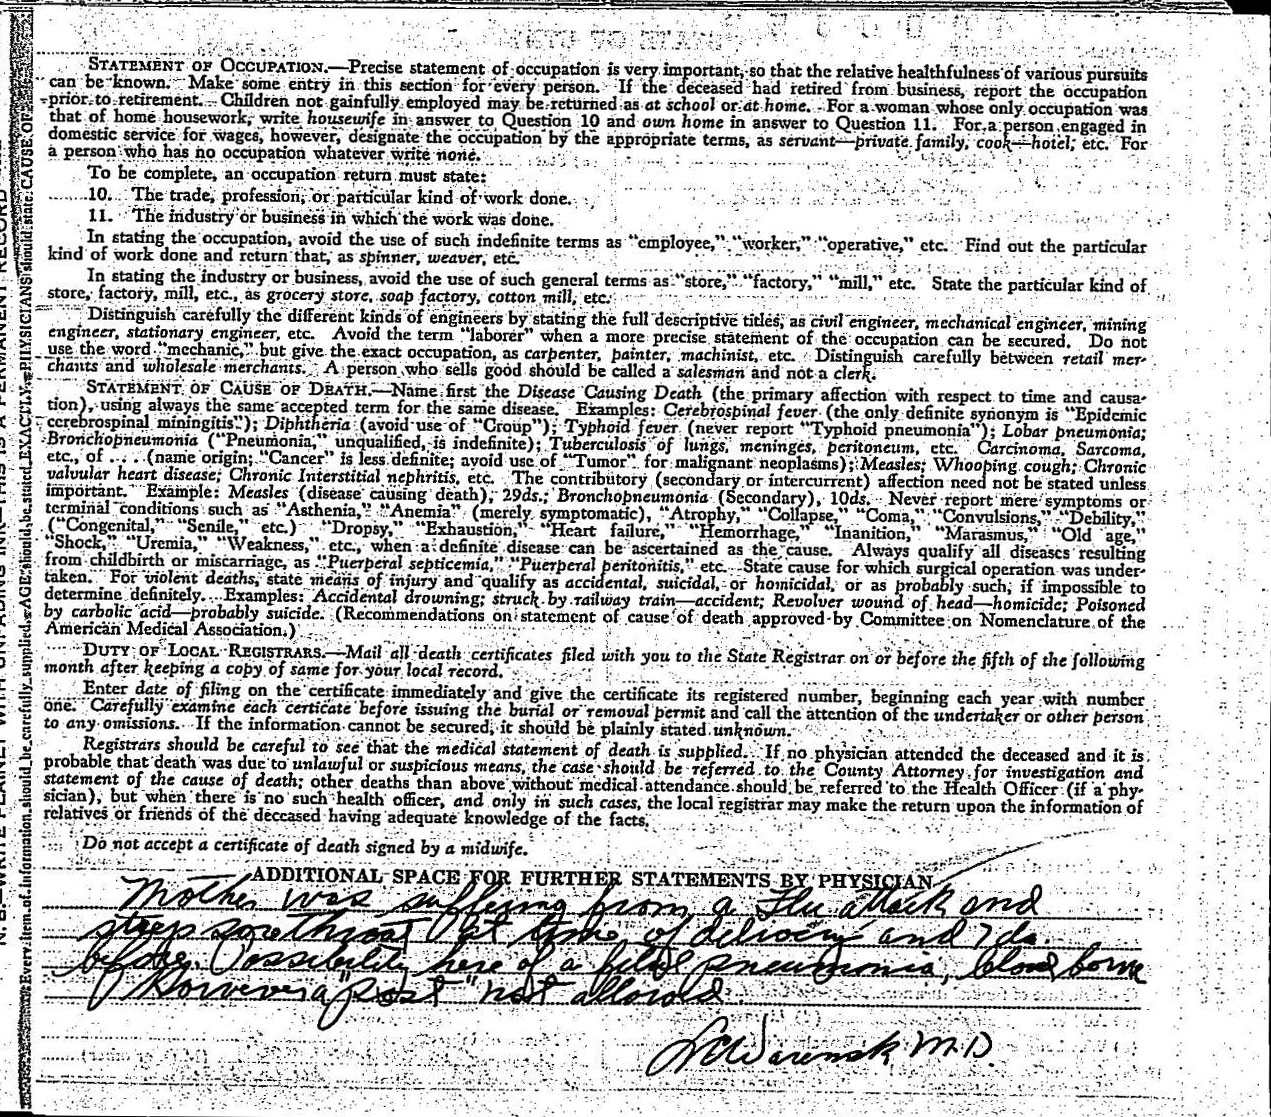 STATEMENT OF OCCUPATION.—Precise statement of occupation is very important, so that the relative healthfulness of various pursuits
can be known. Make some entry in this section for every person. If the deceased had retired from business, report the occupation
prior to retirement. Children not gainfully employed may be returned as at school or at home. For a woman whose only occupation was
that of home housework, write housewife in answer to Question 10 and own home in answer to Question 11. For a person engaged in
domestic service for wages, however, designate the occupation by the appropriate terms, as servant—private family, cook—hotel, etc. For
a person who has no occupation whatever write none.
To be complete, an occupation return must state:
10. The trade, profession, or particular kind of work done.
11. The industry or business in which the work was done.
In stating the occupation, avoid the use of such indefinite terms as "employee," "worker," "operative," etc. Find out the particular
kind of work done and return that, as spinner, weaver, etc.
In stating the industry or business, avoid the use of such general terms as "store," "factory," "mill," etc. State the particular kind of
store, factory, mill, etc., as grocery store, soap factory, cotton mill, etc.
Distinguish carefully the different kinds of engineers by stating the full descriptive titles, as civil engineer, mechanical engineer, mining
engineer, stationary engineer, etc. Avoid the term "laborer" when a more precise statement of the occupation can be secured. Do not
use the word "mechanic," but give the exact occupation, as carpenter, painter, machinist, etc. Distinguish carefully between retail mer-
chants and wholesale merchants. A person who sells good should be called a salesman and not a clerk.
STATEMENT OF CAUSE OF DEATH.—Name first the Disease Causing Death (the primary affection with respect to time and causa-
tion), using always the same accepted term for the same disease. Examples: Cerebrospinal fever (the only definite synonym is "Epidemic
cerebrospinal miningitis"); Diphtheria (avoid use of "Croup"); Typhoid fever (never report "Typhoid pneumonia"); Lobar pneumonia;
Bronchopneumonia ("Pneumonia," unqualified, is indefinite); Tuberculosis of lungs, meninges, peritoneum, etc. Carcinoma, Sarcoma,
etc., of .... (name origin; "Cancer" is less definite; avoid use of "Tumor" for malignant neoplasms); Measles; Whooping cough; Chronic
valvular heart disease; Chronic Interstitial nephritis, etc. The contributory (secondary or intercurrent) affection need not be stated unless
important. Example: Measles (disease causing death), 29ds.; Bronchopneumonia (Secondary), 10ds. Never report mere symptoms or
terminal conditions such as "Asthenia," "Anemia" (merely symptomatic), "Atrophy," "Collapse," "Coma," "Convulsions," "Debility,"
("Congenital," "Senile," etc.) "Dropsy," "Exhaustion," "Heart failure," "Hemorrhage," "Inanition," "Marasmus," "Old age,"
"Shock," "Uremia," "Weakness," etc., when a definite disease can be ascertained as the cause. Always qualify all diseases resulting
from childbirth or miscarriage, as "Puerperal septicemia," "Puerperal peritonitis," etc. State cause for which surgical operation was under-
taken. For violent deaths, state means of injury and qualify as accidental, suicidal, or homicidal, or as probably such, if impossible to
determine definitely. Examples: Accidental drowning; struck by railway train—accident; Revolver wound of head—homicide; Poisoned
by carbolic acid—probably suicide. (Recommendations on statement of cause of death approved by Committee on Nomenclature of the
American Medical Association.)
DUTY OF LOCAL REGISTRARS.—Mail all death certificates filed with you to the State Registrar on or before the fifth of the following
month after keeping a copy of same for your local record.
Enter date of filing on the certificate immediately and give the certificate its registered number, beginning each year with number
one. Carefully examine each certicate before issuing the burial or removal permit and call the attention of the undertaker or other person
to any omissions. If the information cannot be secured, it should be plainly stated unknown.
Registrars should be careful to see that the medical statement of death is supplied. If no physician attended the deceased and it is
probable that death was due to unlawful or suspicious means, the case should be referred to the County Attorney for investigation and
statement of the cause of death; other deaths than above without medical attendance should be referred to the Health Officer (if a phy-
sician), but when there is no such health officer, and only in such cases, the local registrar may make the return upon the information of
relatives or friends of the deceased having adequate knowledge of the facts.
Do not accept a certificate of death signed by a midwife.
ADDITIONAL SPACE FOR FURTHER STATEMENTS BY PHYSICIAN
Mother was suffering from a Flu attack and
strep sorethroat at time of delivery and 7 da.
before. Possibility here of a fetal pneumonia, blood borne
However a "post" not allowed.
M.D.
N. B.—WRITE PLAINLY WITH UNFADING INK—THIS IS A PERMANENT RECORD
Every item of information should be carefully supplied. AGE should be stated EXACTLY. PHYSICIANS should state CAUSE OF